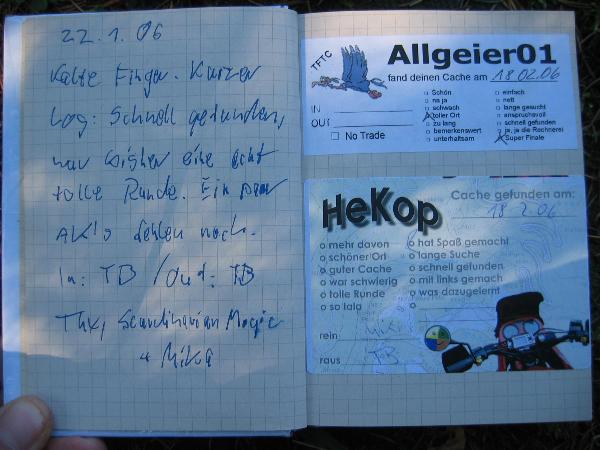 22.1.06
Kalte Finger. Kurzer
Log: Schnell gefunden,
war bisher eine echt
tolle Runde. Ein paar
fehlen noch.
In: TB / Out: TB
Thx, Scandinavian Magic
+ Mika
TFTC
Allgeier01
fand deinen Cache am 18.02.06
IN
OUT
□ No Trade
□ Schön
□ na ja
□ schwach
☒ toller Ort
□ zu lang
□ bemerkenswert
□ unterhaltsam
□ einfach
□ nett
□ lange gesucht
□ anspruchsvoll
□ schnell gefunden
□ ja, ja die Rechnerei
☒ Super Finale
HeKop
Cache gefunden am:
18.2.06
o mehr davon
o schöner Ort
o guter Cache
o war schwierig
o tolle Runde
o so lala
o hat Spaß gemacht
o lange Suche
o schnell gefunden
o mit links gemach
o was dazugelernt
o
rein
raus TB